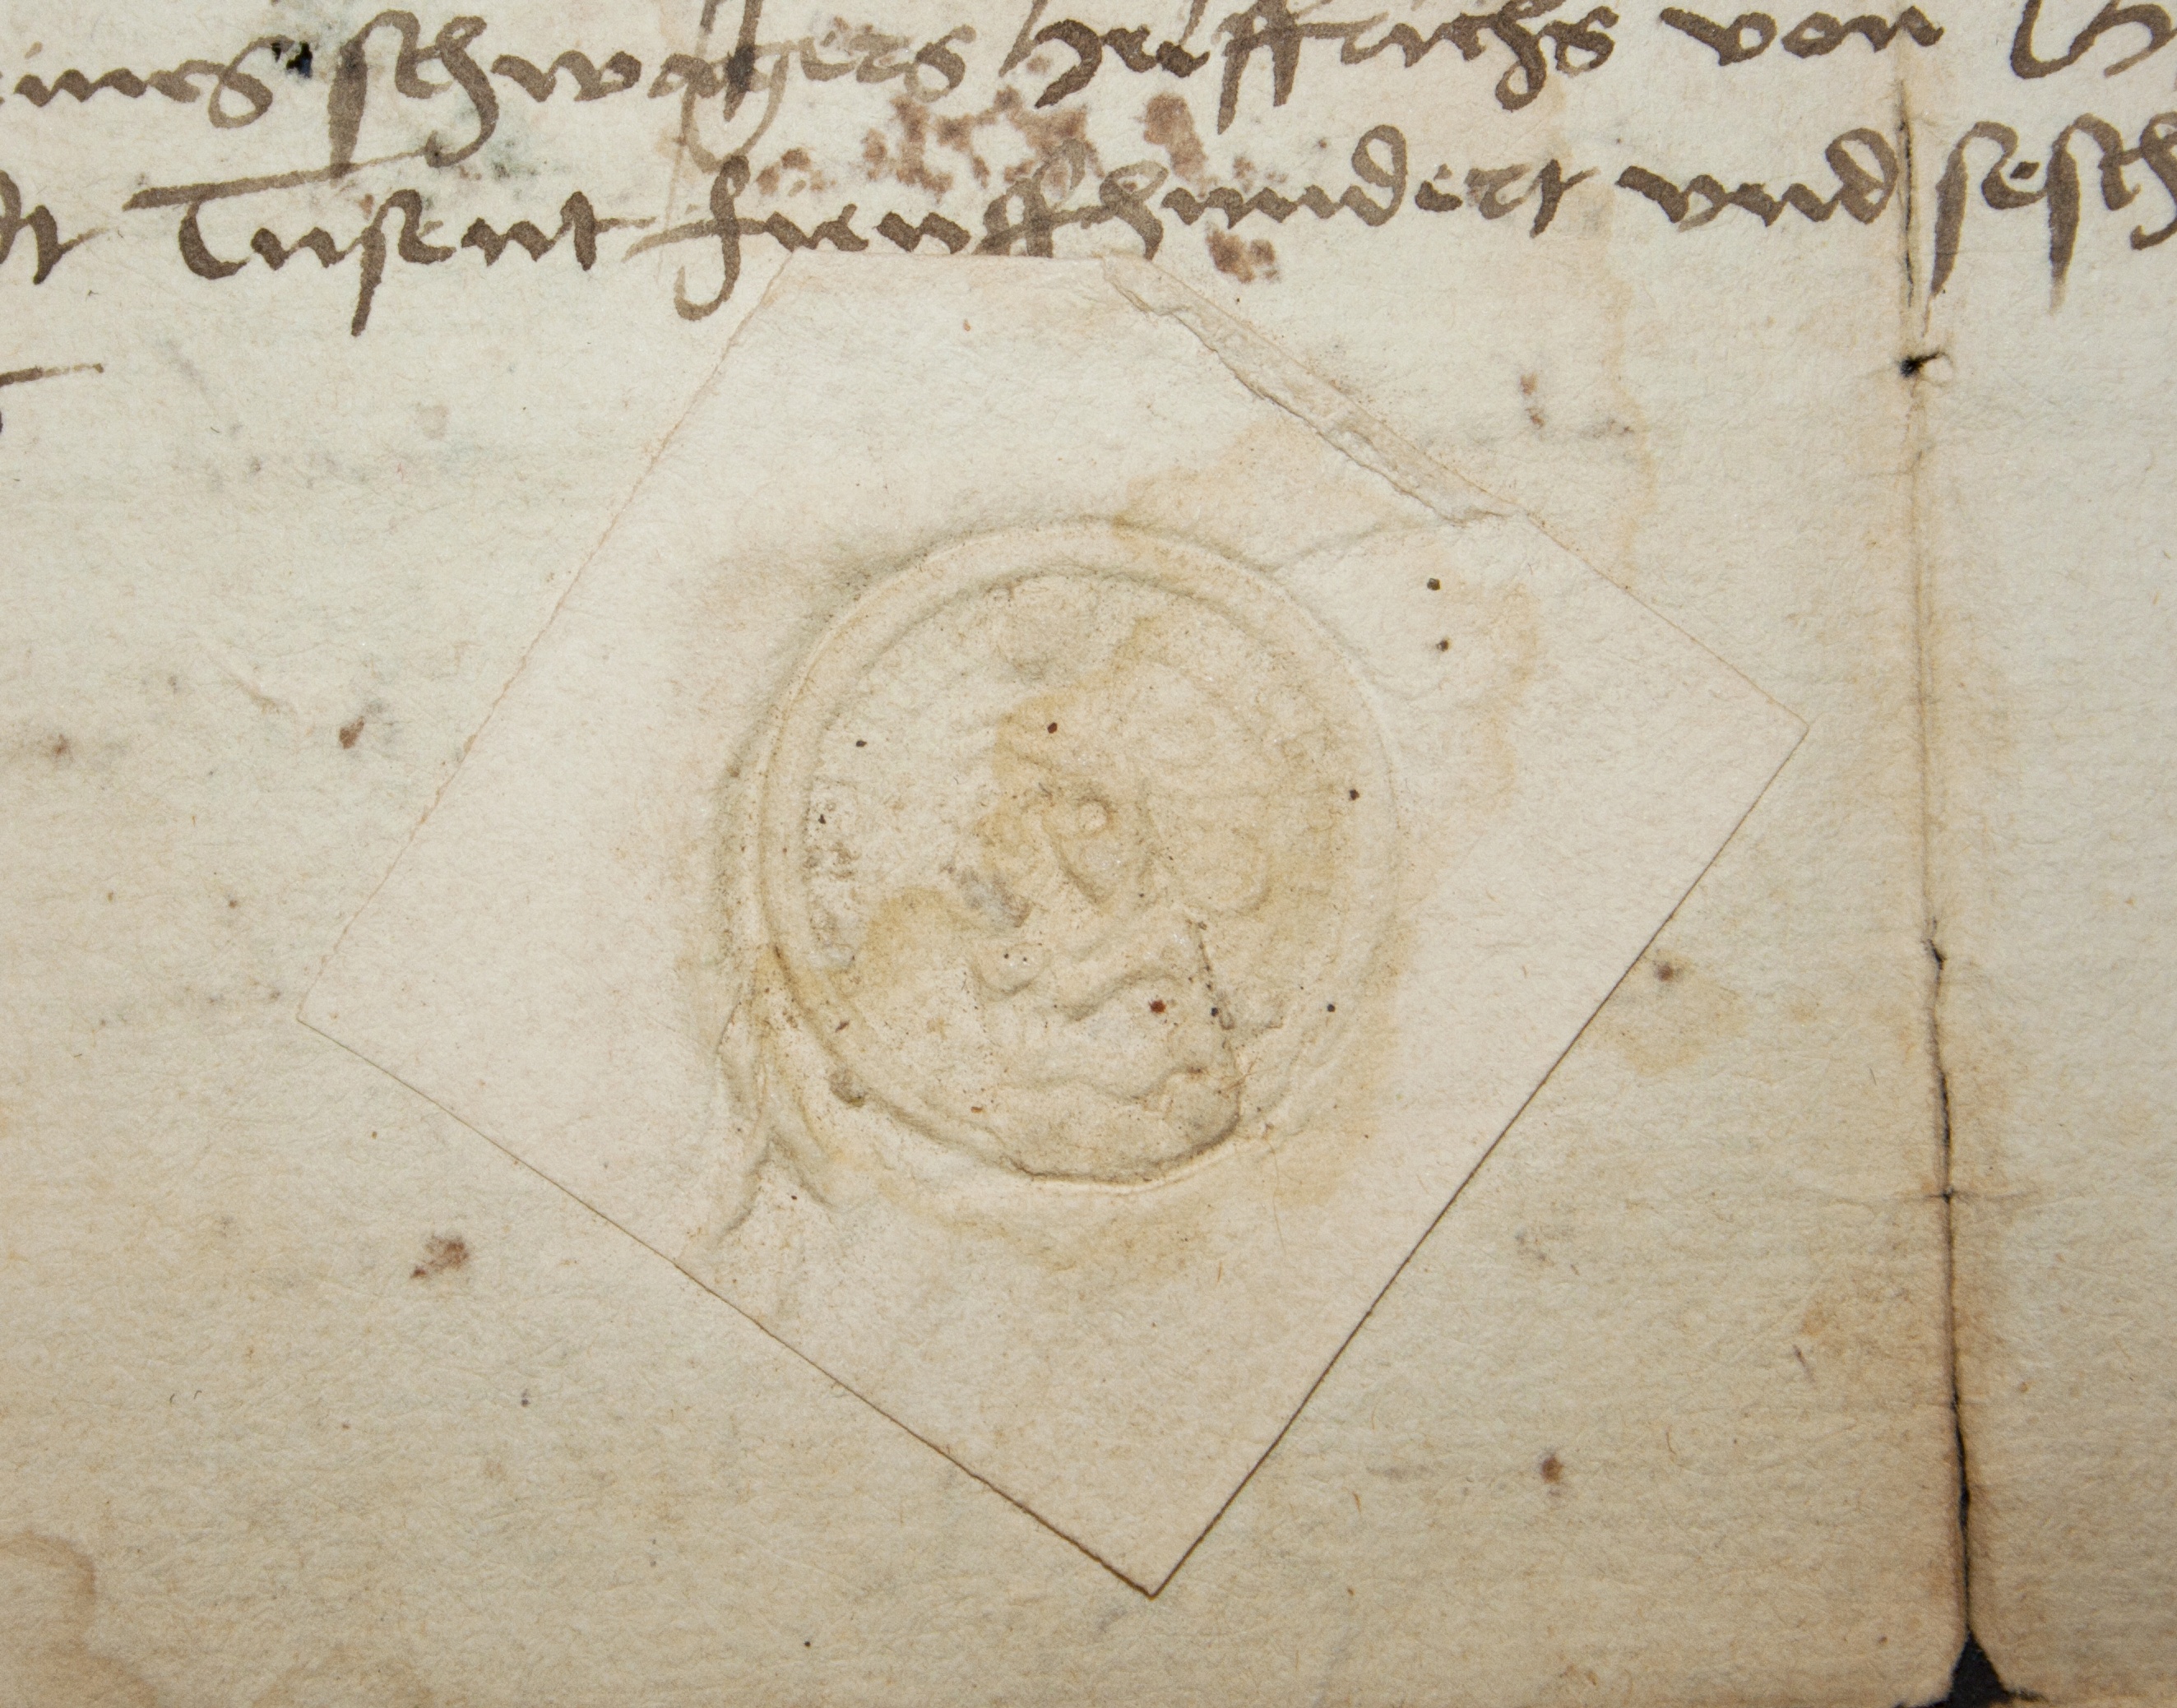 eines schwagers Helffrichs von
dt Tusent funffhundert vnd sesch